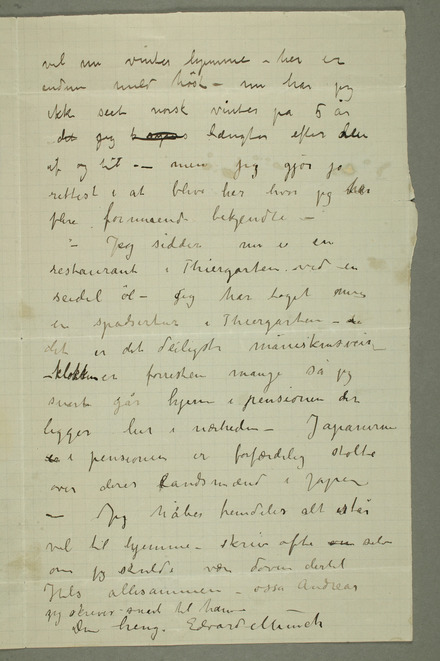 vel nu vinter hjemme – her er
endnu mild höst – nu har jeg
ikke seet norsk vinter på 5 år
jeg længter efter den
af og til – men jeg gjör jo
rettest i at blive her hvor jeg har
flere formuende bekjendte –
– Jeg sidder nu i en
restaurant i Thiergarten ved en
seidel öl – Jeg har taget mig
en spadsertur i Thiergarten –
det er det deiligste måneskinsveir
– klokken er forresten mange så jeg
snart går hjem i pensionen der
ligger lige i nærheden – Japanerne
i pensionen er forfærdelig stolte
over deres Landsmænd i Japan
– Jeg håber fremdeles alt står
vel til hjemme – skriv ofte selv
om jeg skulde være doven dertil
Hils allesammen – også Andreas
jeg skriver snart til ham
Din heng. Edvard Munch